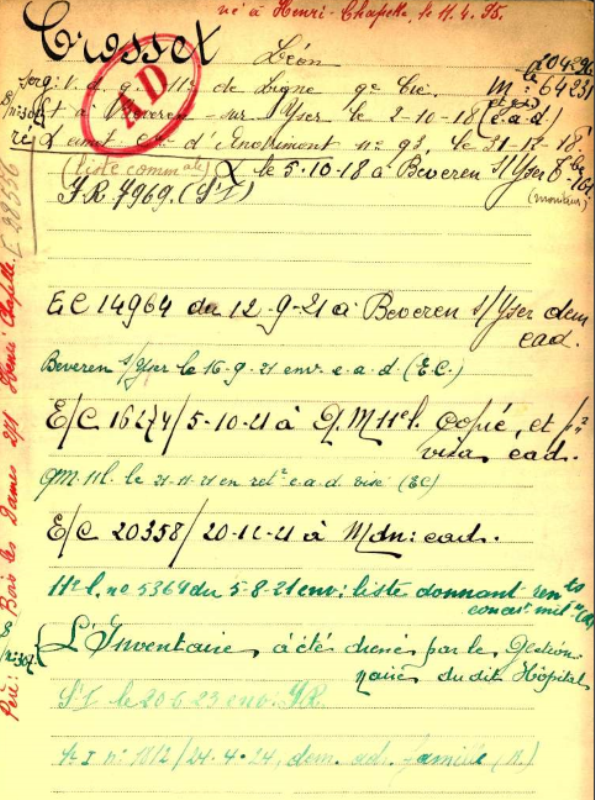 né à Henri-Chapelle, le 11.4.95.
Crosset Léon
204296
Serg: V.d.g. 11e de Ligne 9e Cie. M le: 64231
AD
à Beveren - sur Yser le 2-10-18 (e.a.d.)
d'Enterrement n° 93, le 31-12-18.
(liste comm ale) le 5-10-18 à Beveren s/Yser
(moniteur)
F.R. 7969. (S'I)
E 28336
E.C 14964 du 12-9-21 à Beveren s/Yser dem
ead.
Beveren s/Yser le 16-9-21 env. e.a.d. (E.C.)
E/C 16274/5-10-21 à Q.M 11e l. Copié, et pr
visa, ead.
QM. 11 l. le 21-11-21 en ret e.a.d. visé (EC)
E/C 20358/20-12-21 à Mdn: ead.
11e l. no 5364 du 5-8-21 env: liste donnant ren ts
concst mil re
n° 307: L'Inventaire, a été dressé par le Gestion-
naire du dit Hôpital
S'I le 20 6 23 env: F.R.
S' I n° 1012/24-4-24, dem. ad. famille
Père: Bois les Dames 271 Henri Chapelle.